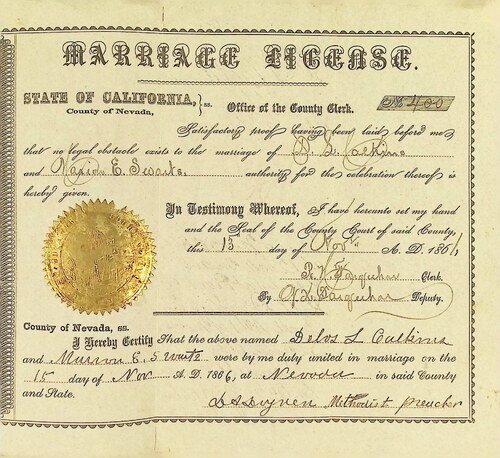 MARRIAGE LICENSE.
STATE OF CALIFORNIA, } ss. Office of the County Clerk. No. 400
County of Nevada,
Satisfactory proof having been laid before me
that no legal obstacle exists to the marriage of D. L. Calkins
and Marion E. Swarts authority for the celebration thereof is
hereby given.
In Testimony Whereof, I have hereunto set my hand
and the Seal of the County Court of said County,
this 15 day of Nov. A. D. 186
Farquhar Clerk.
By Farquhar Deputy.
County of Nevada, ss.
I Hereby Certify That the above named Delos L Calkins
and E. Swartz were by me duly united in marriage on the
15 day of Nov A. D. 1866, at Nevada in said County
and State.
Methodist preacher